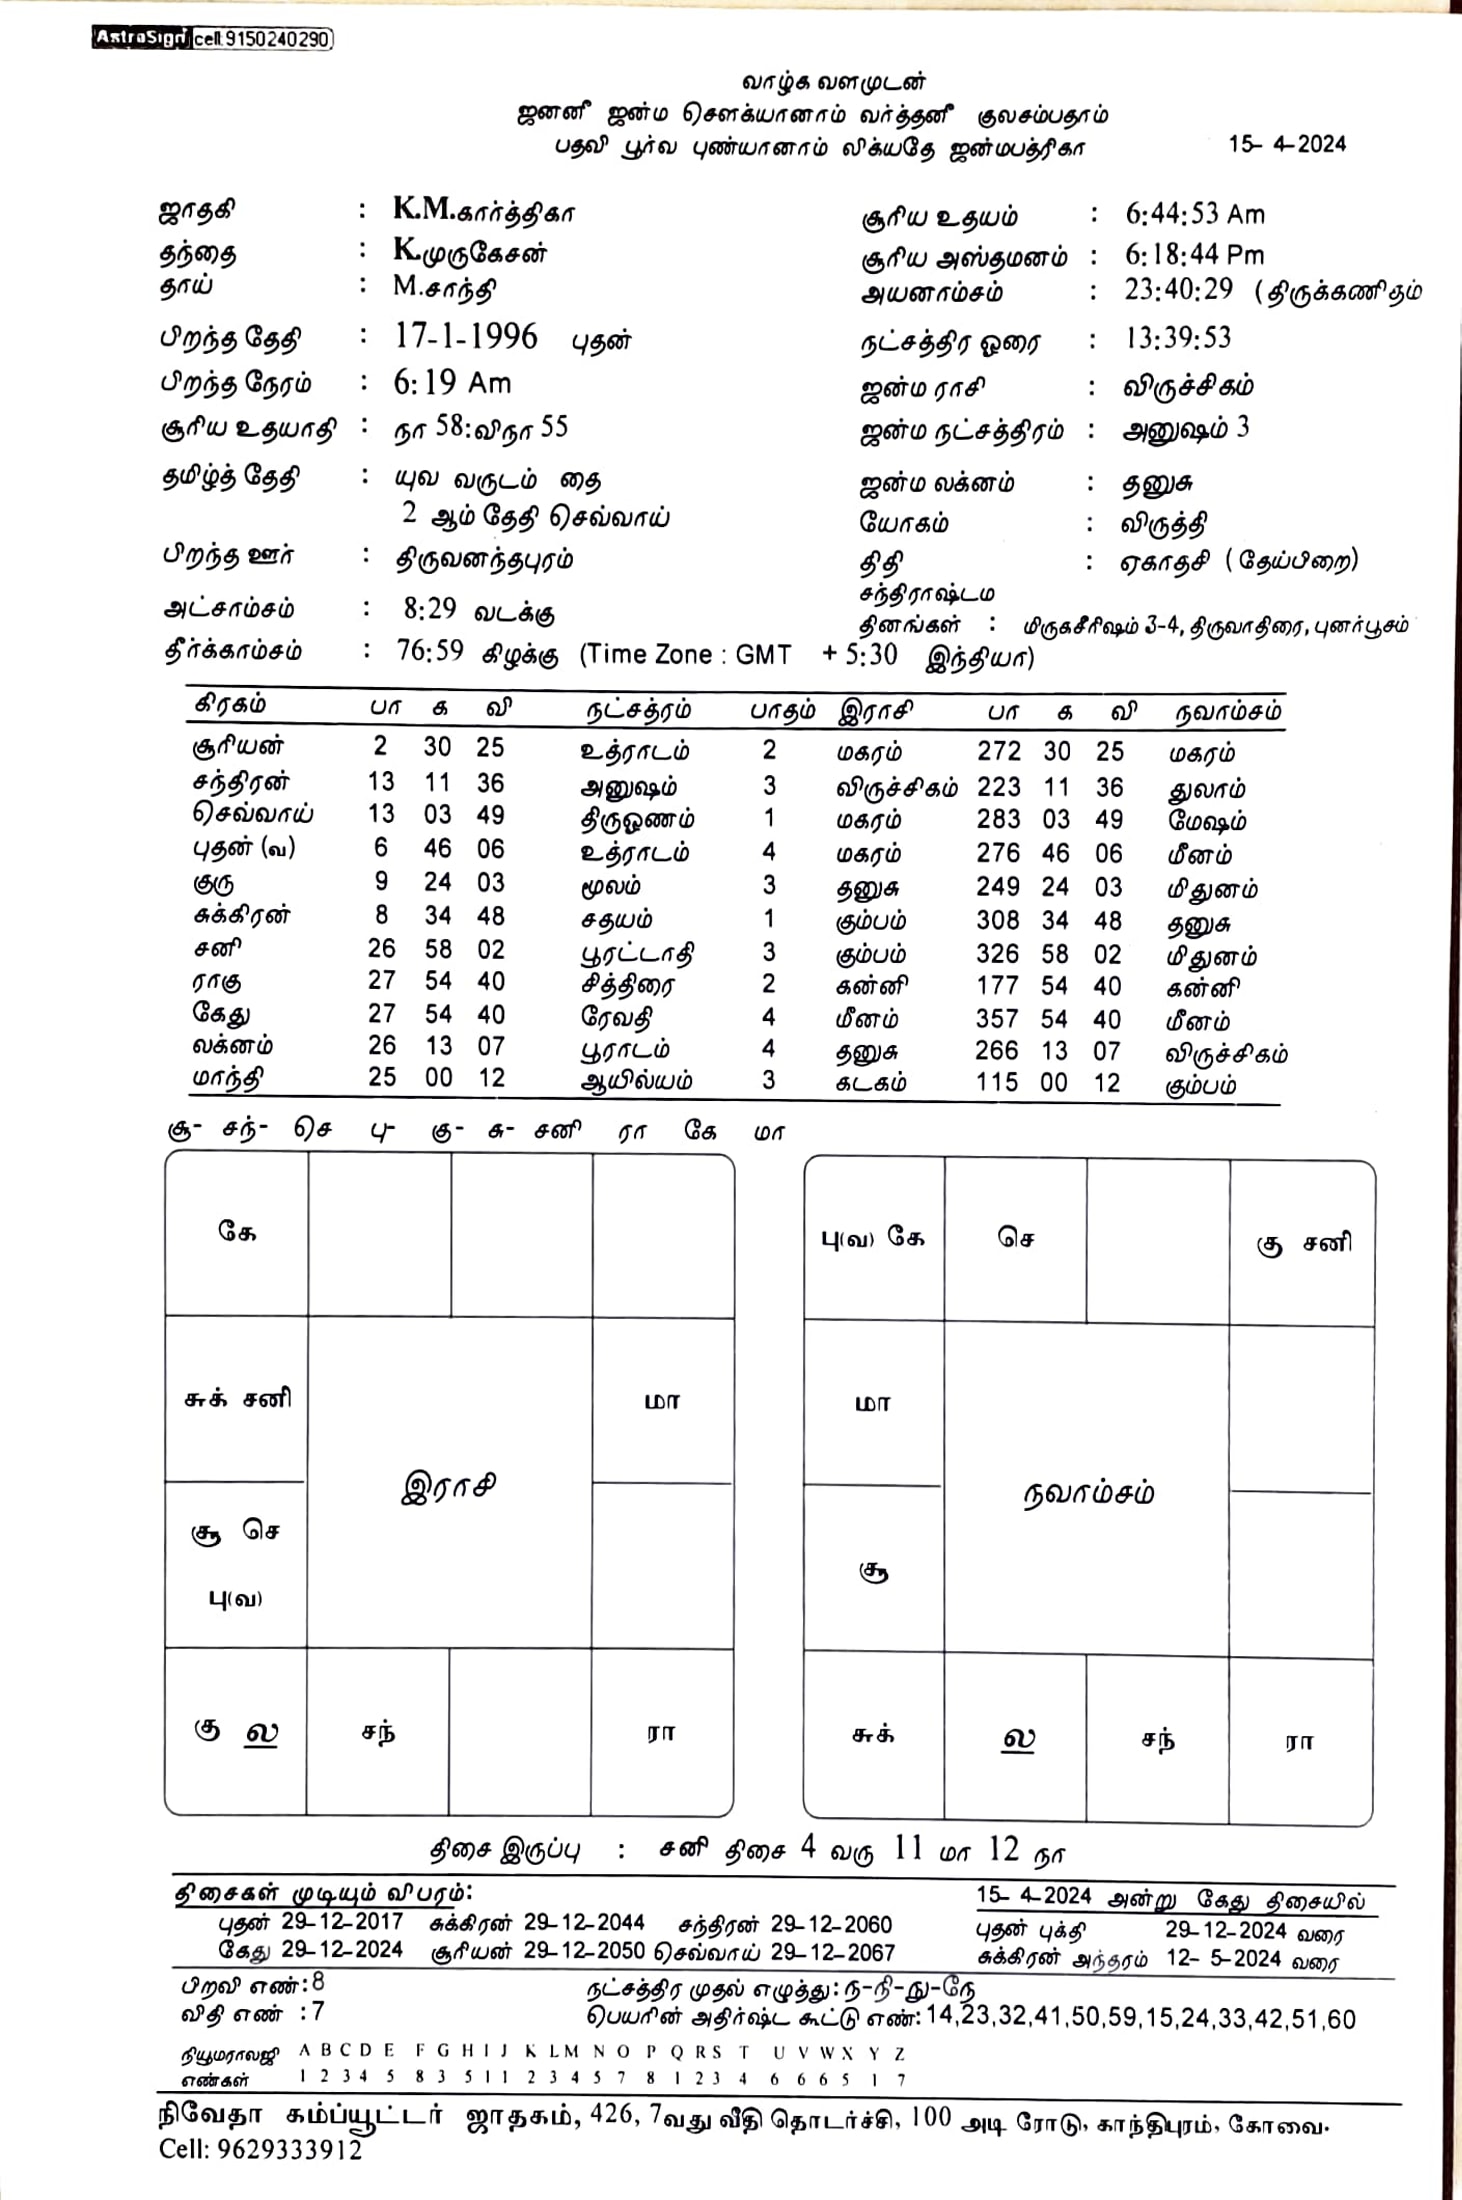 AstroSign cell:9150240290
வாழ்க வளமுடன்
ஜனனீ ஜன்ம சௌக்யானாம் வர்த்தனீ குலசம்பதாம்
பதவி பூர்வ புண்யானாம் லிக்யதே ஜன்மபத்ரிகா 15- 4-2024
ஜாதகி : K.M.கார்த்திகா சூரிய உதயம் : 6:44:53 Am
தந்தை : K.முருகேசன் சூரிய அஸ்தமனம் : 6:18:44 Pm
தாய் : M.சாந்தி அயனாம்சம் : 23:40:29 (திருக்கணிதம்
பிறந்த தேதி : 17-1-1996 புதன் நட்சத்திர ஓரை : 13:39:53
பிறந்த நேரம் : 6:19 Am ஜன்ம ராசி : விருச்சிகம்
சூரிய உதயாதி : நா 58:விநா 55 ஜன்ம நட்சத்திரம் : அனுஷம் 3
தமிழ்த் தேதி : யுவ வருடம் தை ஜன்ம லக்னம் : தனுசு
2 ஆம் தேதி செவ்வாய் யோகம் : விருத்தி
பிறந்த ஊர் : திருவனந்தபுரம் திதி : ஏகாதசி (தேய்பிறை)
சந்திராஷ்டம
அட்சாம்சம் : 8:29 வடக்கு தினங்கள் : மிருகசீரிஷம் 3-4, திருவாதிரை, புனர்பூசம்
தீர்க்காம்சம் : 76:59 கிழக்கு (Time Zone : GMT + 5:30 இந்தியா)
கிரகம் பா க வி நட்சத்ரம் பாதம் இராசி பா க வி நவாம்சம்
சூரியன் 2 30 25 உத்ராடம் 2 மகரம் 272 30 25 மகரம்
சந்திரன் 13 11 36 அனுஷம் 3 விருச்சிகம் 223 11 36 துலாம்
செவ்வாய் 13 03 49 திருஓணம் 1 மகரம் 283 03 49 மேஷம்
புதன் (வ) 6 46 06 உத்ராடம் 4 மகரம் 276 46 06 மீனம்
குரு 9 24 03 மூலம் 3 தனுசு 249 24 03 மிதுனம்
சுக்கிரன் 8 34 48 சதயம் 1 கும்பம் 308 34 48 தனுசு
சனி 26 58 02 பூரட்டாதி 3 கும்பம் 326 58 02 மிதுனம்
ராகு 27 54 40 சித்திரை 2 கன்னி 177 54 40 கன்னி
கேது 27 54 40 ரேவதி 4 மீனம் 357 54 40 மீனம்
லக்னம் 26 13 07 பூராடம் 4 தனுசு 266 13 07 விருச்சிகம்
மாந்தி 25 00 12 ஆயில்யம் 3 கடகம் 115 00 12 கும்பம்
சூ- சந்- செ பு- கு- சு- சனி ரா கே மா
கே
சுக் சனி மா
இராசி
சூ செ
பு(வ)
கு ல சந் ரா
பு(வ) கே செ கு சனி
மா
நவாம்சம்
சூ
சுக் ல சந் ரா
திசை இருப்பு : சனி திசை 4 வரு 11 மா 12 நா
திசைகள் முடியும் விபரம்: 15- 4-2024 அன்று கேது திசையில்
புதன் 29-12-2017 சுக்கிரன் 29-12-2044 சந்திரன் 29-12-2060 புதன் புக்தி 29-12-2024 வரை
கேது 29-12-2024 சூரியன் 29-12-2050 செவ்வாய் 29-12-2067 சுக்கிரன் அந்தரம் 12- 5-2024 வரை
பிறவி எண்:8 நட்சத்திர முதல் எழுத்து: ந-நி-நு-நே
விதி எண் :7 பெயரின் அதிர்ஷ்ட கூட்டு எண்:14,23,32,41,50,59,15,24,33,42,51,60
நியூமராலஜி A B C D E F G H I J K L M N O P Q R S T U V W X Y Z
எண்கள் 1 2 3 4 5 8 3 5 1 1 2 3 4 5 7 8 1 2 3 4 6 6 6 5 1 7
நிவேதா கம்ப்யூட்டர் ஜாதகம், 426, 7வது வீதி தொடர்ச்சி, 100 அடி ரோடு, காந்திபுரம், கோவை.
Cell: 9629333912